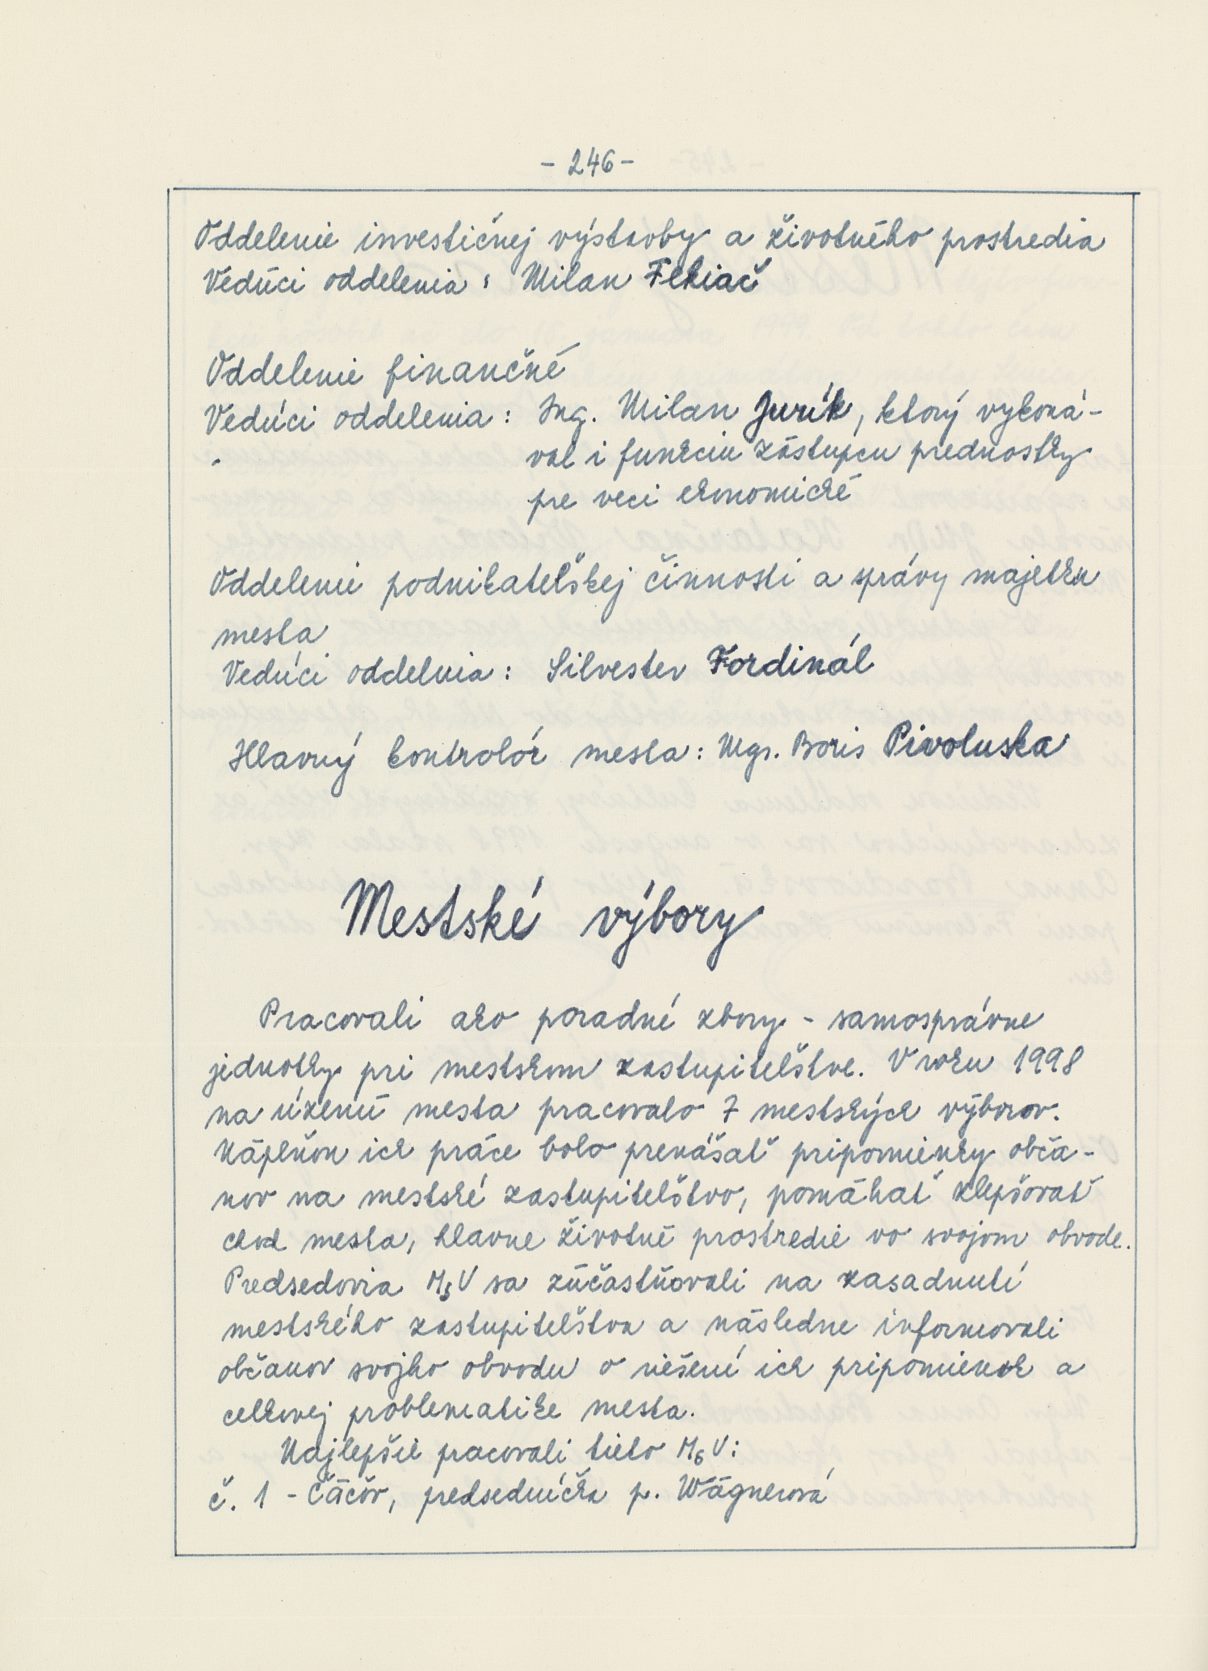 - 246 -
Oddelenie investičnej výstavby a životného prostredia
Vedúci oddelenia : Milan Fekiač
Oddelenie finančné
Vedúci oddelenia : Ing. Milan Jurík, ktorý vykoná-
val i funkciu zástupcu prednostky
pre veci ekonomické
Oddelenie podnikateľskej činnosti a správy majetku
mesta
Vedúci oddelnia : Silvester Fordinál
Hlavný kontrolór mesta : Mgr. Boris Pivoluska
Mestské výbory
Pracovali ako poradné zbory - samosprávne
jednotky pri mestskom zastupiteľstve. V roku 1998
na území mesta pracovalo 7 mestských výborov.
Náplňou ich práce bolo prenášať pripomienky obča-
nov na mestské zastupiteľstvo, pomáhať zlepšovať
chod mesta, hlavne životné prostredie vo svojom obvode.
Predsedovia MsV sa zúčastňovali na zasadnutí
mestského zastupiteľstva a následne informovali
občanov svojho obvodu o riešení ich pripomienok a
celkovej problematike mesta.
Najlepšie pracovali tieto MsV:
č. 1 - Čáčov, predsedníčka p. Wágnerová